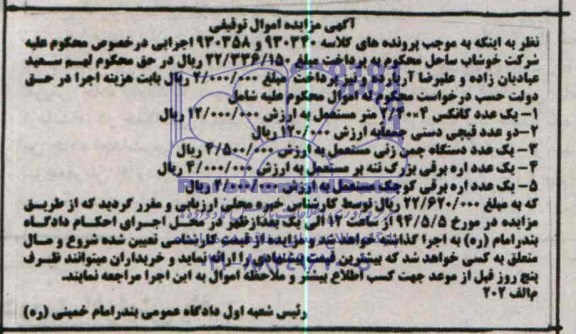 آگهی مزایده اموال توقیفی
نظر به اینکه به موجب پرونده های کلاسه ۹۳۰۳۴۰ و ۹۳۰۳۵۸ اجرایی درخصوص محکوم علیه
شرکت خوشاب ساحل محکوم به پرداخت مبلغ ۲۲/۳۳۶/۱۵۰ ریال در حق محکوم لهم سعید
عبادیان زاده و علیرضا آریا و در پرداخت مبلغ ۲/۰۰۰/۰۰۰ ریال بابت هزینه اجرا در حق
دولت حسب درخواست محکوم له اموال محکوم علیه شامل
۱- یک عدد کانکس ۴×۲/۶۰ متر مستعمل به ارزش ۱۲/۰۰۰/۰۰۰ ریال
۲-دو عدد قیچی دستی جمعا به ارزش ۱۲۰/۰۰۰ ریال
۳- یک عدد دستگاه چمن زنی مستعمل به ارزش ۴/۵۰۰/۰۰۰ ریال
۴- یک عدد اره برقی بزرگ تنه بر مستعمل به ارزش ۴/۰۰۰/۰۰۰ ریال
۵- یک عدد اره برقی کوچک مستعمل به ارزش ریال
که به مبلغ ۲۲/۶۲۰/۰۰۰ ریال توسط کارشناس خبره محلی ارزیابی و مقرر گردید که از طریق
مزایده در مورخ ۹۴/۵/۵ از ساعت ۱۲ الی یک بعدازظهر در محل اجرای احکام دادگاه
بندرامام (ره) به اجرا گذاشته خواهد شد و مزایده از قیمت کارشناسی تعیین شده شروع و مال
متعلق به کسی خواهد شد که بیشترین قیمت پیشنهادی را ارائه نماید و خریداران میتوانند ظرف
پنج روز قبل از موعد جهت کسب اطلاع بیشتر و ملاحظه اموال به این اجرا مراجعه نمایند.
م/الف ۲۰۲
رئیس شعبه اول دادگاه عمومی بندرامام خمینی (ره)